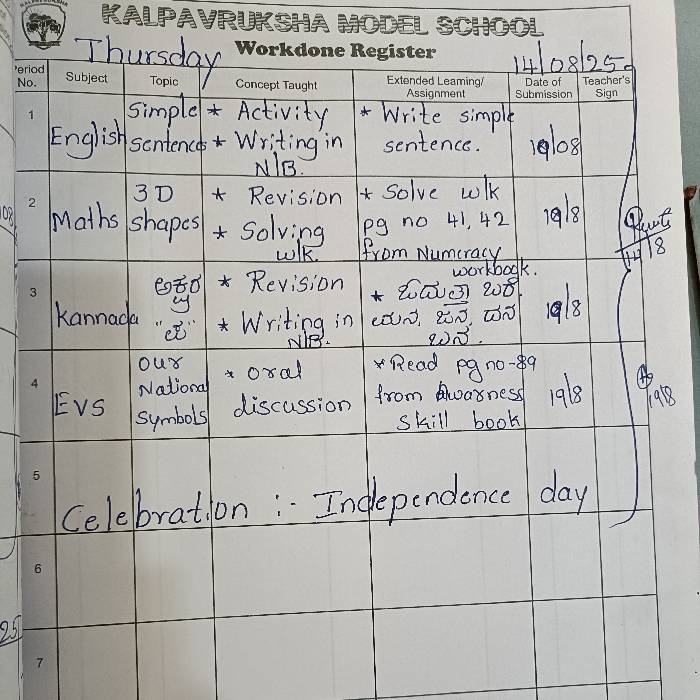 KALPAVRUKSHA MODEL SCHOOL
Thursday Workdone Register 14/08/25
Period No. Subject Topic Concept Taught Extended Learning/ Assignment Date of Submission Teacher's Sign
1 English Simple sentences * Activity * Writing in N/B. * Write simple sentence. 19/08
2 Maths 3D shapes * Revision * Solving w/k. * Solve w/k pg no 41, 42 from Numeracy workbook. 19/8
3 Kannada ಅಕ್ಷರ * Revision * Writing in N/B. * ಓದು ಬರೆ. ಜನ, ವನ 19/8
4 EVS our National Symbols * oral discussion * Read pg no-89 from Awarness Skill book 19/8
14/8
19/8
5 Celebration :- Independence day
6
7